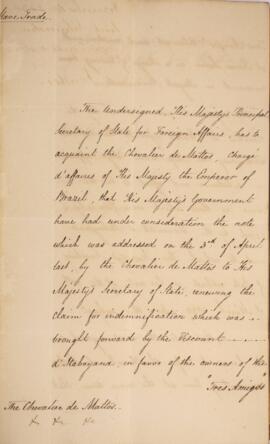 Slave Trade.
The Undersigned, His Majesty's Principal
Secretary of State for Foreign Affairs, has to
acquaint the Chevalier de Mattos, Chargé
d'affaires of His Majesty the Emperor of
Brazil, that His Majesty's Government
have had under consideration the note
which was addressed on the 3rd of April
last, by the Chevalier de Mattos to His
Majesty's Secretary of State, renewing the
claim for indemnification which was
brought forward by the Viscount
d'Itabayana, in favor of the owners of the
"Tres Amigos"
The Chevalier de Mattos.